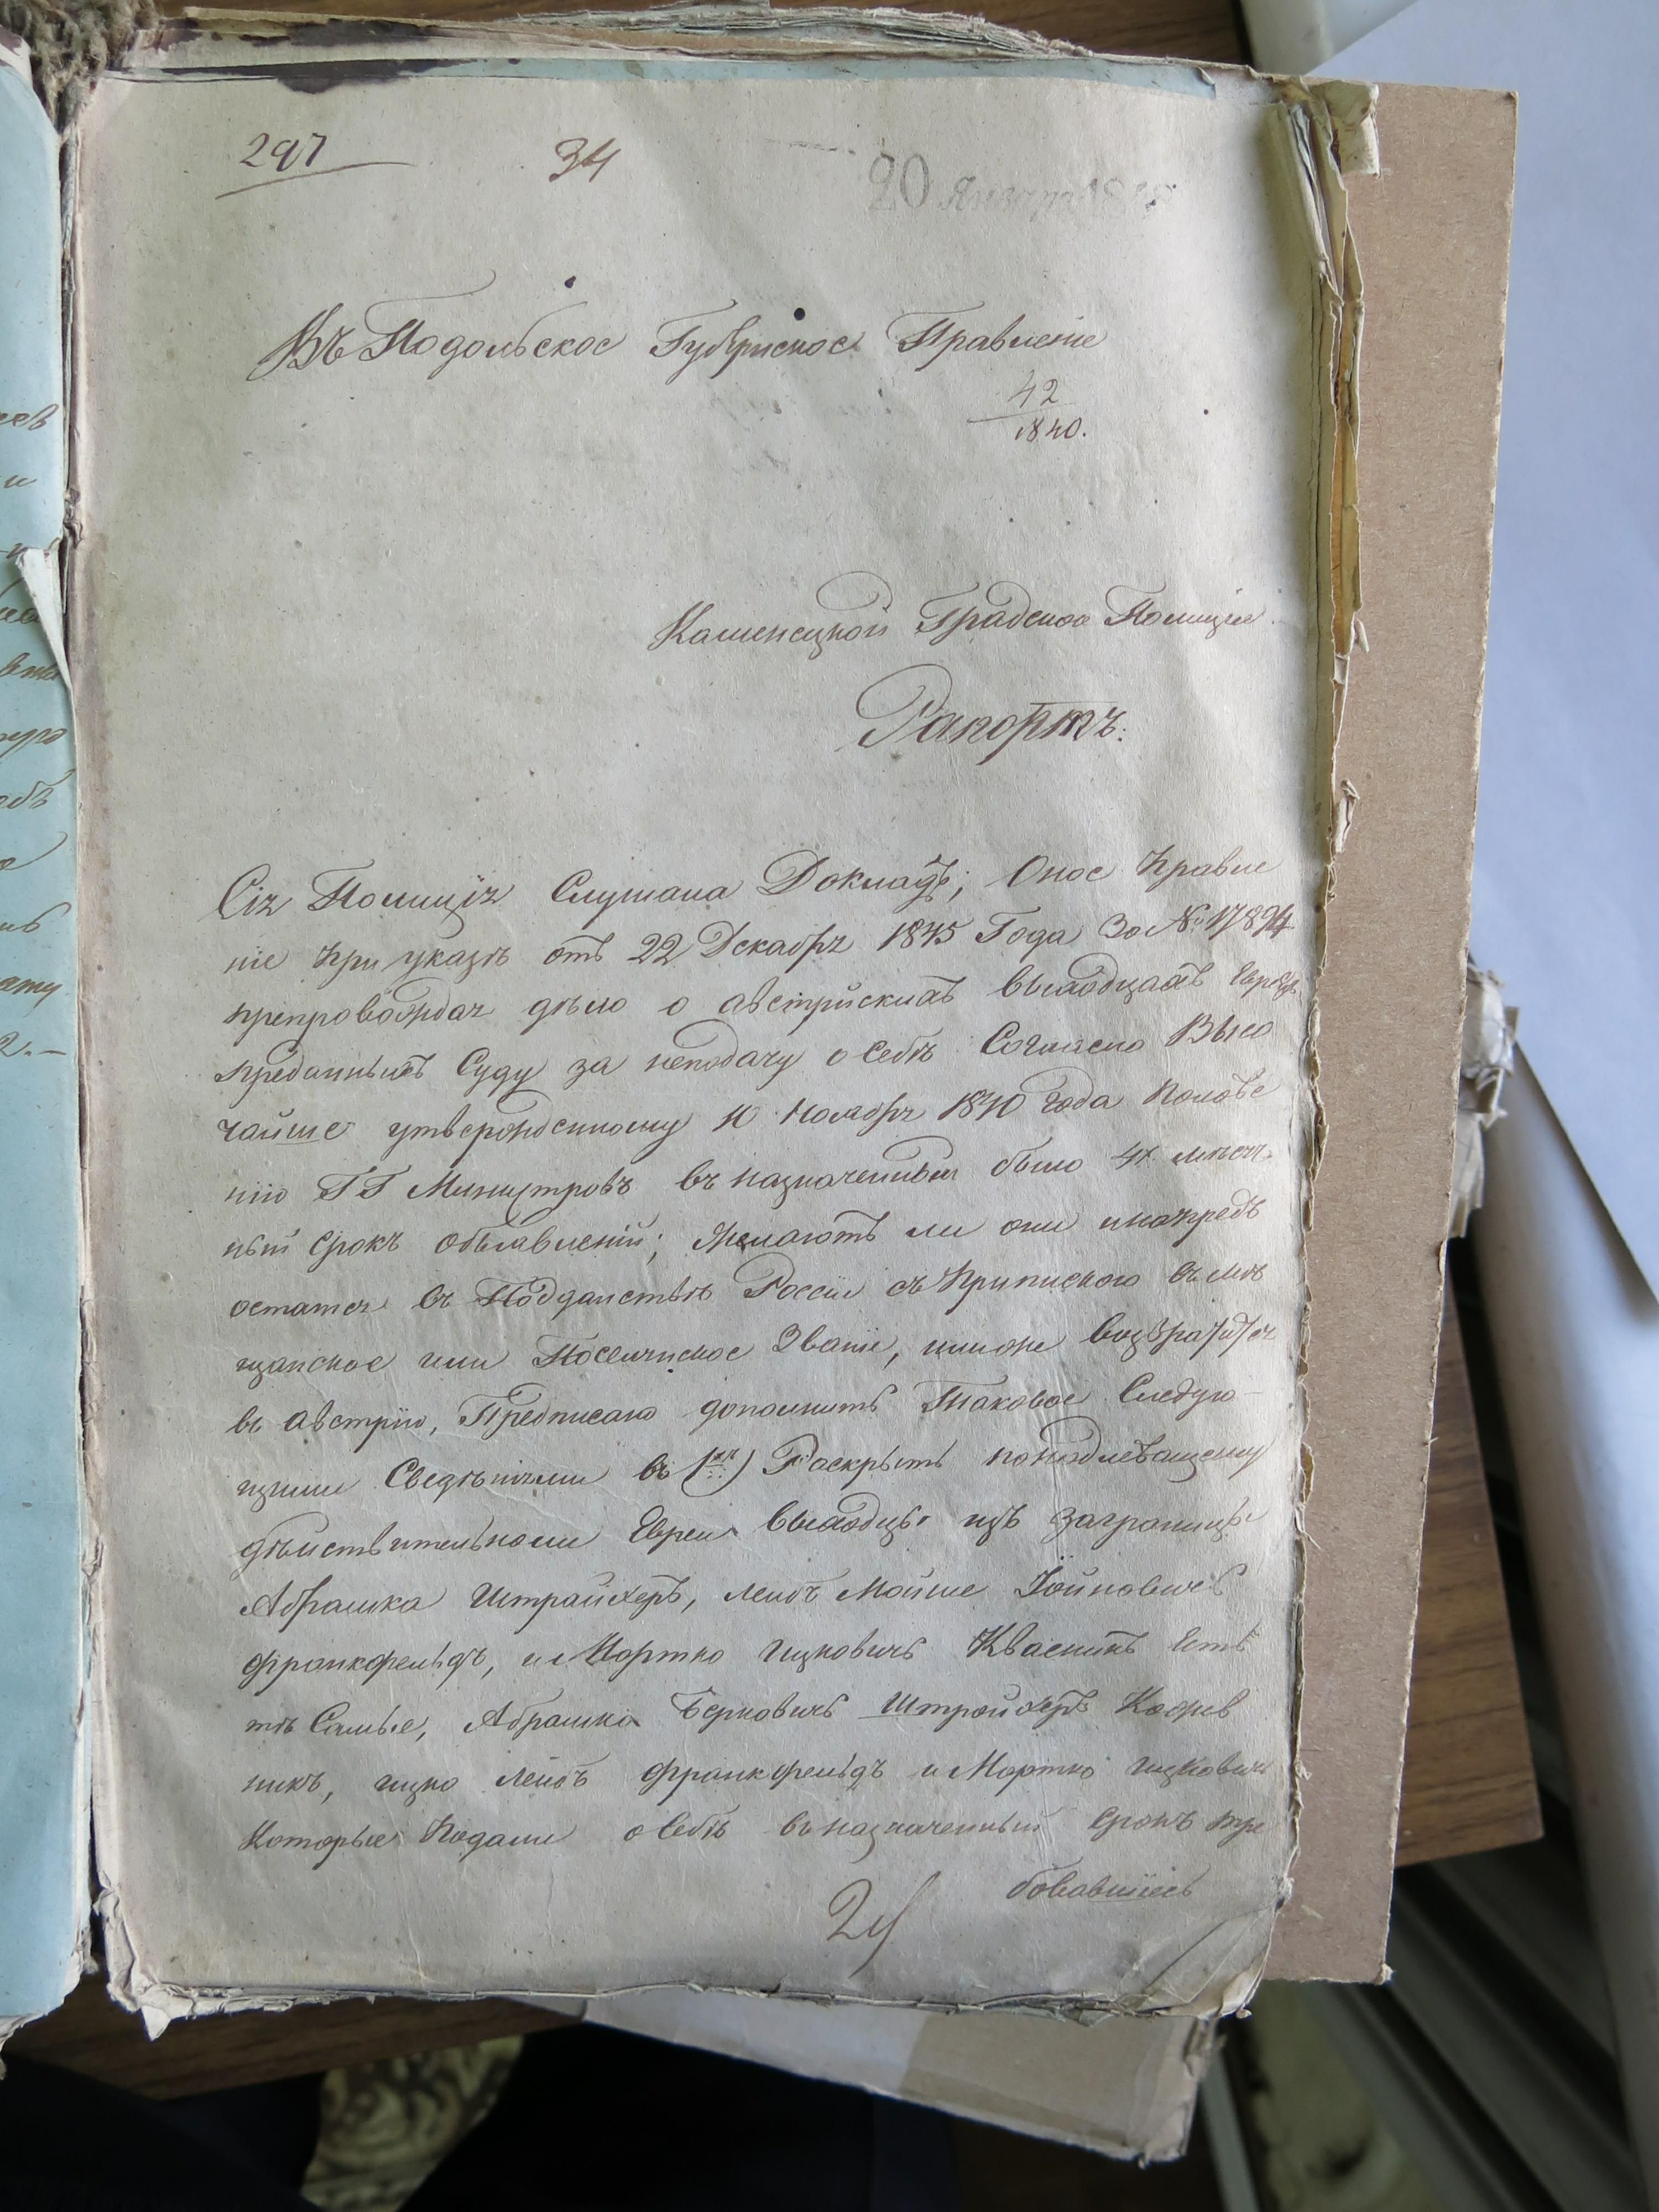 297 34 20 Января 18
Въ Подольское Губернское Правленіе
42
1840.
Каменецкой Градской Полиціи
Рапортъ.
Сія Полиція Слушала Докладъ; Оное Правле
ніе при указѣ отъ 22 Декабря 1845 Года За № 17894
препровождая дѣло о австрійскихъ выходцахъ Евреяхъ
преданныхъ Суду за неподачу о Себѣ Согласно Высо
чайше утвержденному 10 Ноября 1840 года Положе
нію ГГ Министровъ въ назначенный было 4х месяч
ный срокъ объявленій; желаютъ ли они на предъ
остатся въ Подданствѣ Россіи съ припискою въ мѣ
щанское или Поселянское Званіе, или же возвратится
въ Австрію, Предписано дополнить Таковое Следую-
щими Сведѣніями въ 1хъ) Раскрыть по надлежащему
дѣйствительноли Евреи выходцы изъ заграницы
Абрамка Штрайхеръ, Лейбъ Мойше Іойновичъ
Франкфельдъ, и Мортко Ицковичъ Квасникъ Есть
тѣ Самые, Абрамко Берковичъ Штрайхеръ Кафев
никъ, Ицко Лейбъ Франкфельдъ и Мортко Ицковичъ
Которые Подали о Себѣ въ назначенный Срокъ тре
бовавшіесь